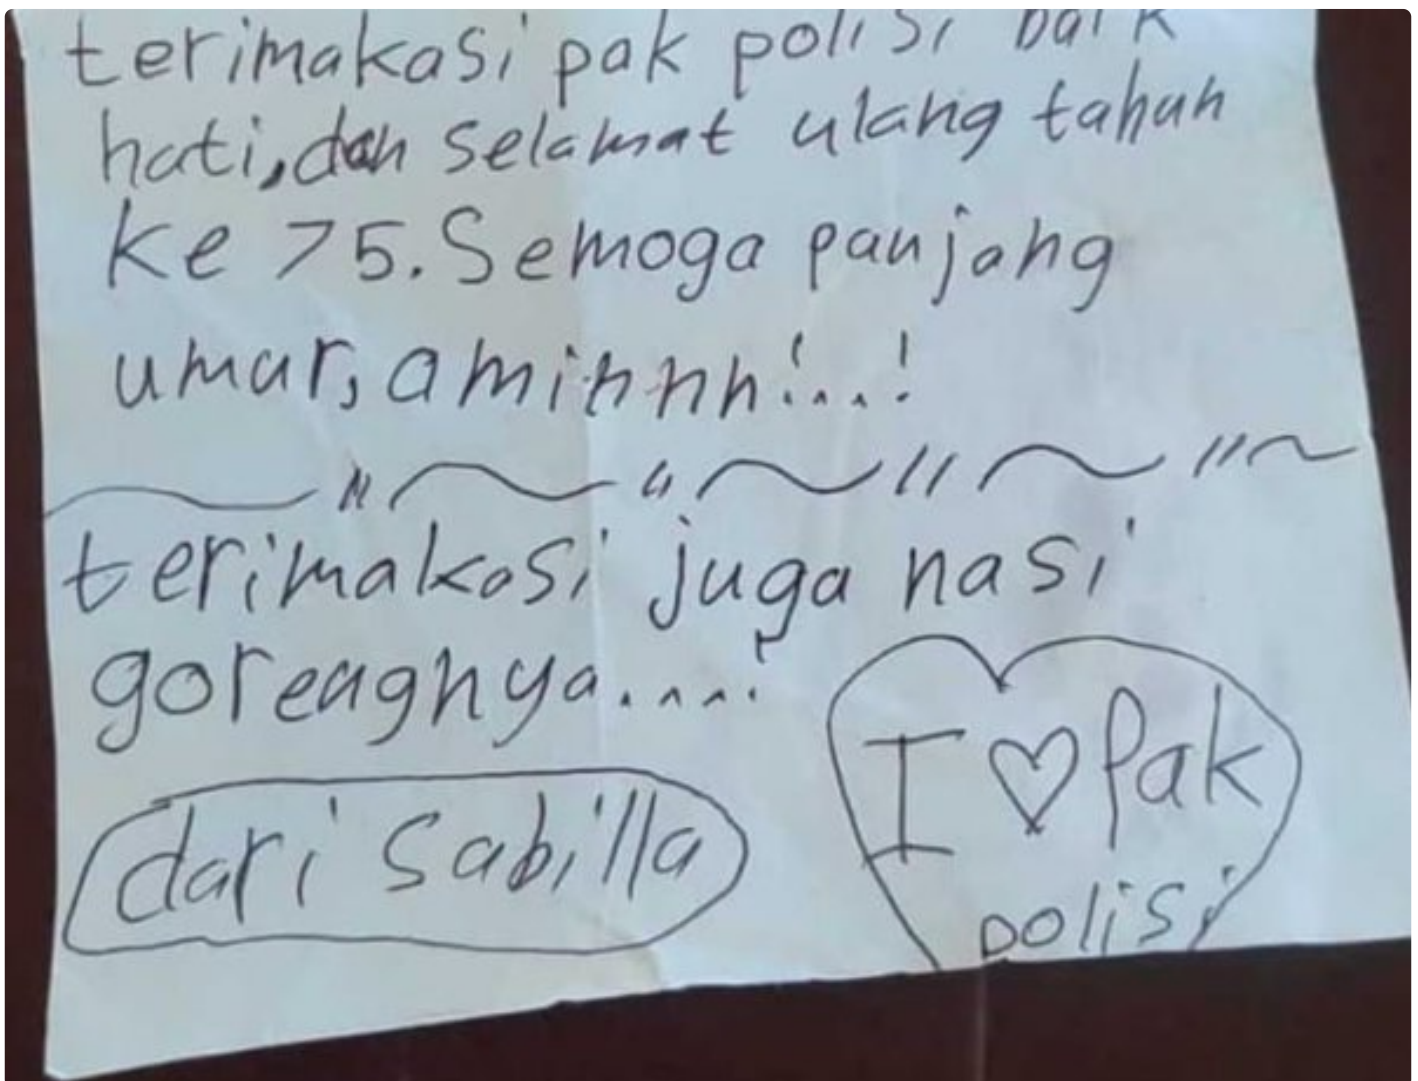 terimakasi pak polisi baik
hati, dan selamat ulang tahun
ke 75. Semoga panjang
umur, aminnn!...!
terimakasi juga nasi
gorengnya....!
dari sabilla
I ♡ Pak
polisi